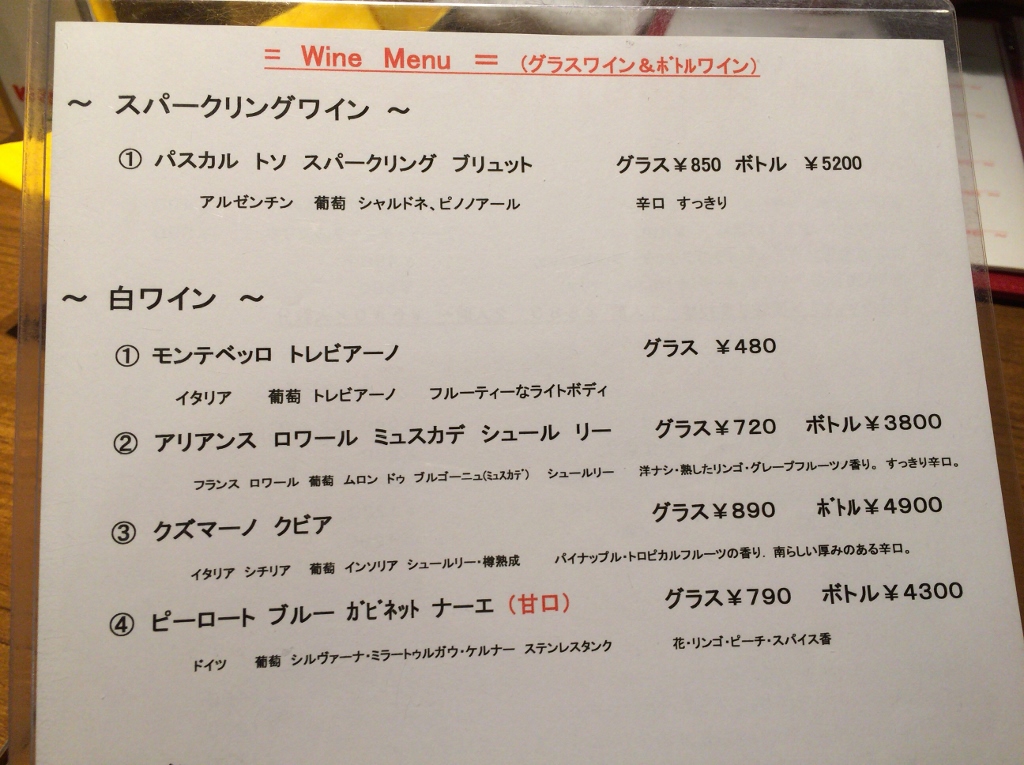 = Wine Menu = (グラスワイン&ﾎﾞﾄﾙワイン)
～ スパークリングワイン ～
① パスカル トソ スパークリング ブリュット グラス￥850 ボトル ￥5200
アルゼンチン 葡萄 シャルドネ、ピノノアール 辛口 すっきり
～ 白ワイン ～
① モンテベッロ トレビアーノ グラス ￥480
イタリア 葡萄 トレビアーノ フルーティーなライトボディ
② アリアンス ロワール ミュスカデ シュール リー グラス￥720 ボトル￥3800
フランス ロワール 葡萄 ムロン ドゥ ブルゴーニュ(ﾐｭｽｶﾃﾞ) シュールリー 洋ナシ・熟したリンゴ・グレープフルーツノ香り。 すっきり辛口。
③ クズマーノ クビア グラス￥890 ﾎﾞﾄﾙ￥4900
イタリア シチリア 葡萄 インソリア シュールリー・樽熟成 パイナップル・トロピカルフルーツの香り. 南らしい厚みのある辛口。
④ ピーロート ブルー ｶﾋﾞﾈｯﾄ ナーエ (甘口) グラス￥790 ボトル￥4300
ドイツ 葡萄 シルヴァーナ・ミラートゥルガウ・ケルナー ステンレスタンク 花・リンゴ・ピーチ・スパイス香